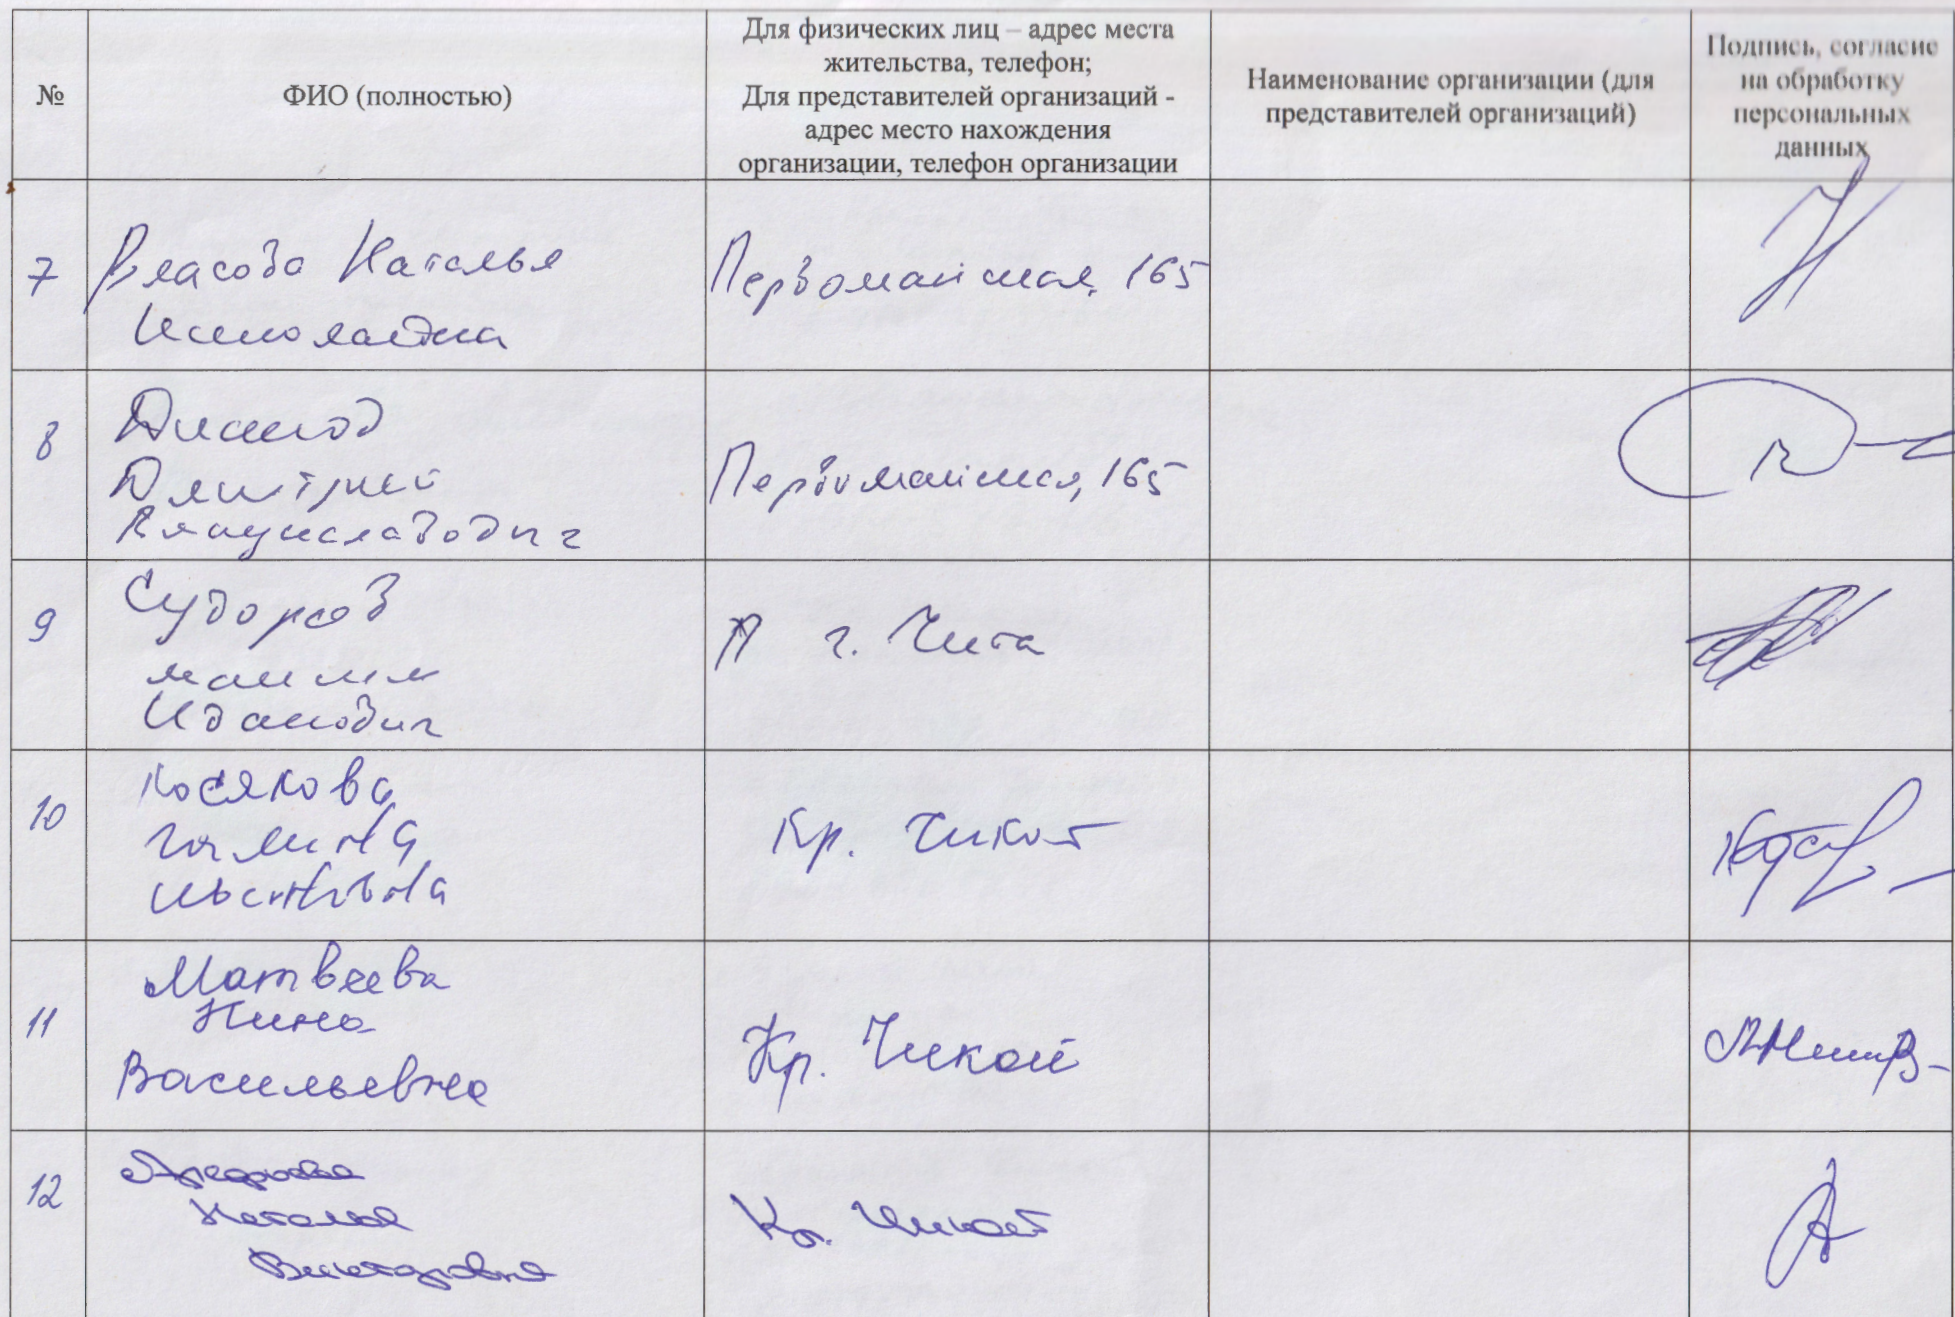 №
ФИО (полностью)
Для физических лиц – адрес места
жительства, телефон;
Для представителей организаций -
адрес место нахождения
организации, телефон организации
Наименование организации (для
представителей организаций)
Подпись, согласие
на обработку
персональных
данных
7
Власова Наталья
Николаевна
Первомайская, 165
8
Дмитрий
Вячеславович
Первомайская, 165
9
Максим
Иванович
г. Чита
10
Косякова
Галина
Кр. Чикой
11
Матвеева
Нина
Васильевна
Кр. Чикой
12
Наталья
Викторовна
Кр. Чикой